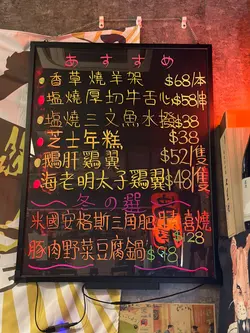 おすすめ
香草燒羊架 $68/本
塩燒厚切牛舌心 $58/串
塩燒三文魚水撥 $38
芝士年糕 $38
鵝肝鷄翼 $52/隻
海老明太子鷄翼 $48/隻
冬の鍋
米國安格斯三角肥 喜燒
$128
豚肉野菜豆腐鍋 $98